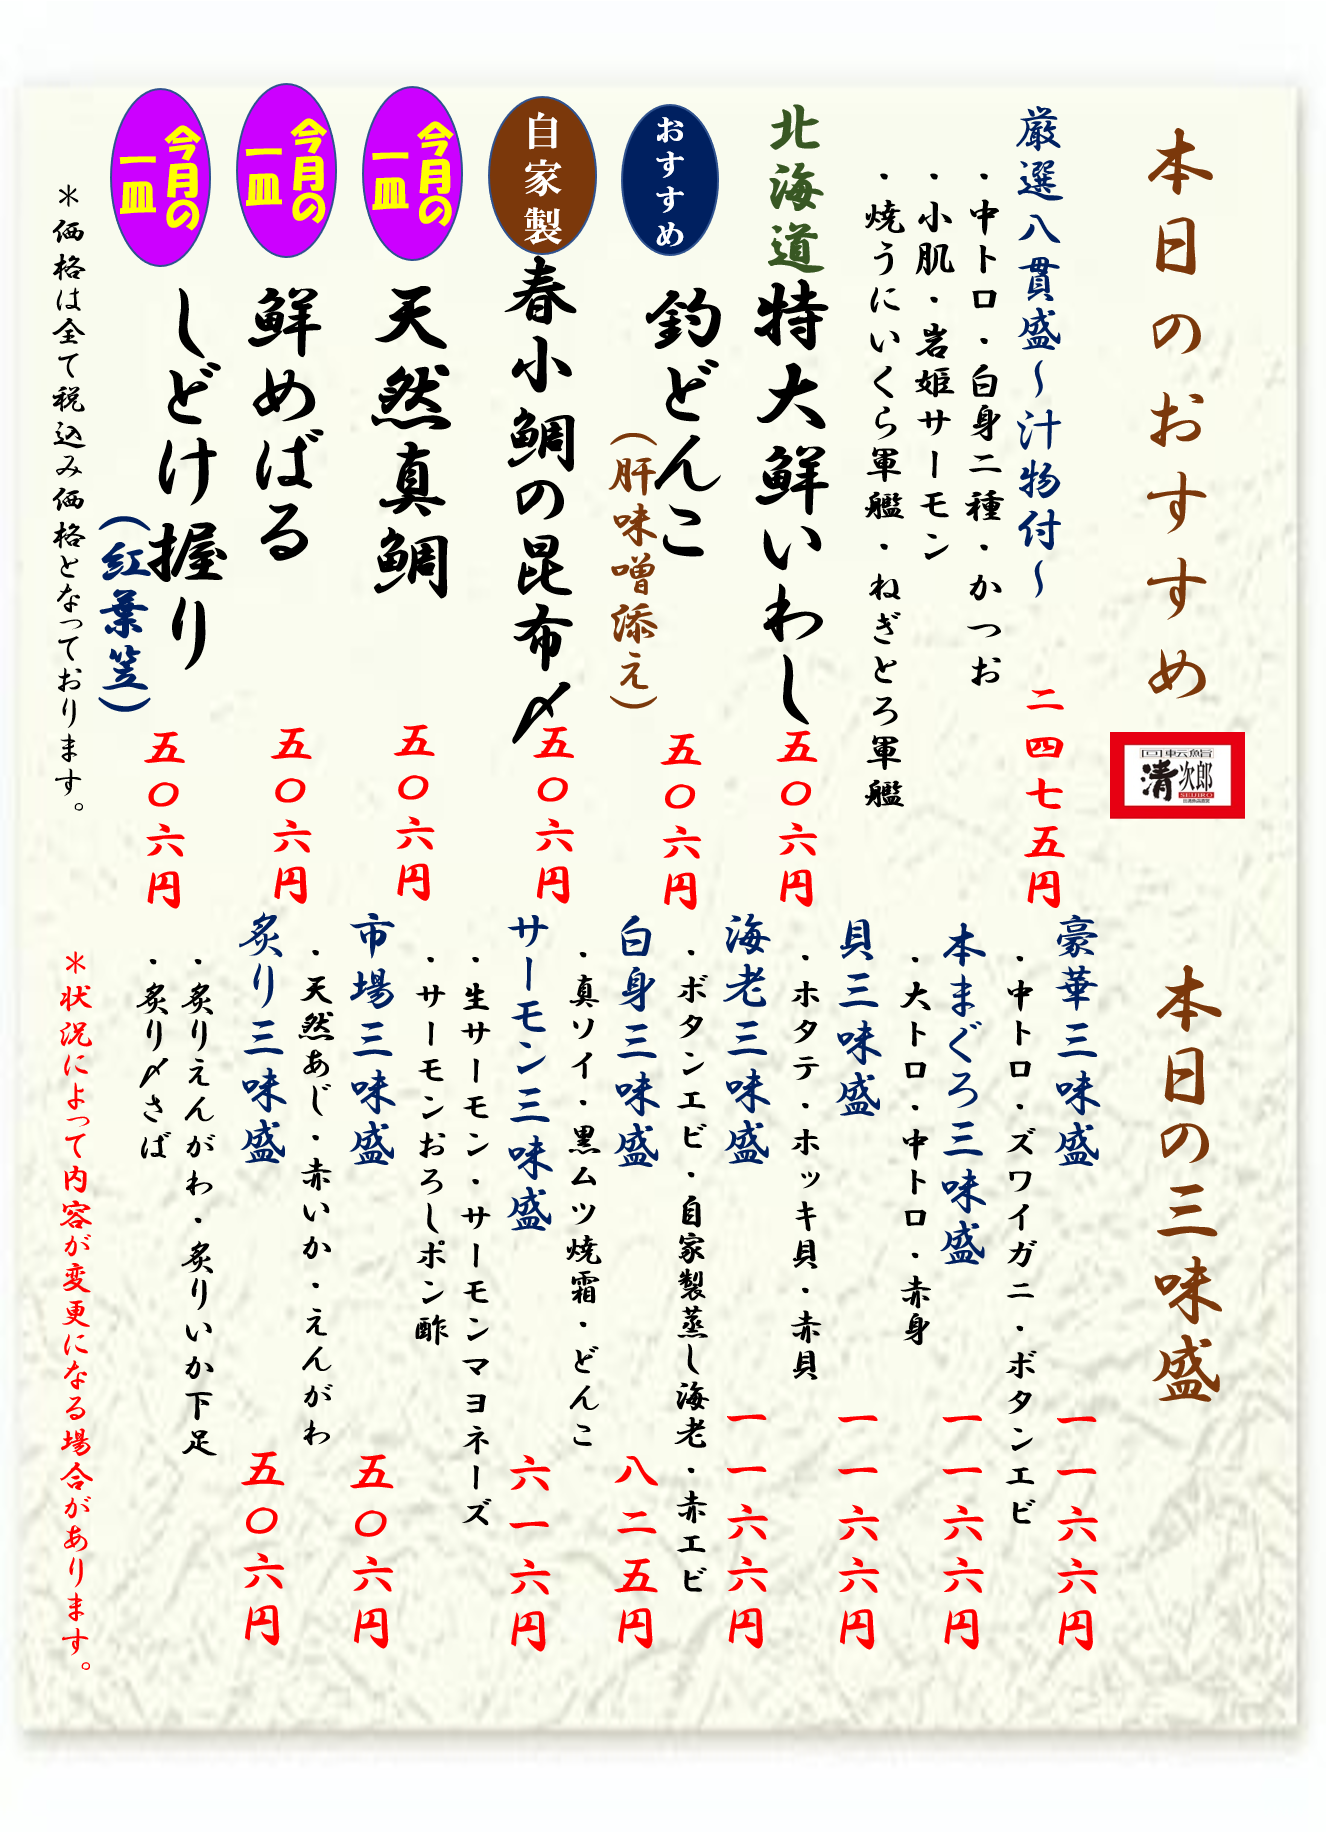 本日のおすすめ
回転鮨
清次郎
SEIJIRO
厳選八貫盛～汁物付～
二四七五円
・中トロ・白身二種・かつお
・小肌・岩姫サーモン
・焼うにいくら軍艦・ねぎとろ軍艦
北海道特大鮮いわし
五〇六円
おすすめ
釣どんこ
（肝味噌添え）
五〇六円
自家製
春小鯛の昆布〆
五〇六円
今月の
一皿
天然真鯛
五〇六円
今月の
一皿
鮮めばる
五〇六円
今月の
一皿
しどけ握り
（紅葉笠）
五〇六円
＊価格は全て税込み価格となっております。
本日の三味盛
豪華三味盛
一一六六円
・中トロ・ズワイガニ・ボタンエビ
本まぐろ三味盛
一一六六円
・大トロ・中トロ・赤身
貝三味盛
一一六六円
・ホタテ・ホッキ貝・赤貝
海老三味盛
一一六六円
・ボタンエビ・自家製蒸し海老・赤エビ
白身三味盛
八二五円
・真ソイ・黒ムツ焼霜・どんこ
サーモン三味盛
六一六円
・生サーモン・サーモンマヨネーズ
・サーモンおろしポン酢
市場三味盛
五〇六円
・天然あじ・赤いか・えんがわ
炙り三味盛
五〇六円
・炙りえんがわ・炙りいか下足
・炙り〆さば
＊状況によって内容が変更になる場合があります。